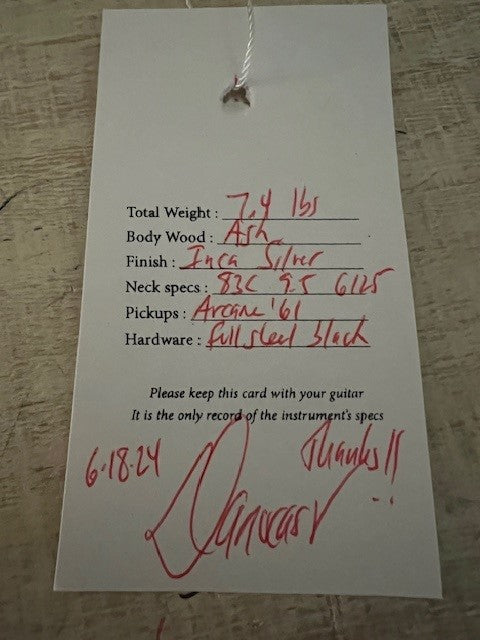 Total Weight : 7.4 lbs
Body Wood : Ash
Finish : Inca Silver
Neck specs : 83C 9.5 6125
Pickups : Arcane '61
Hardware : full steel black
Please keep this card with your guitar
It is the only record of the instrument's specs
6.18.24 Thanks!!
Danocaster